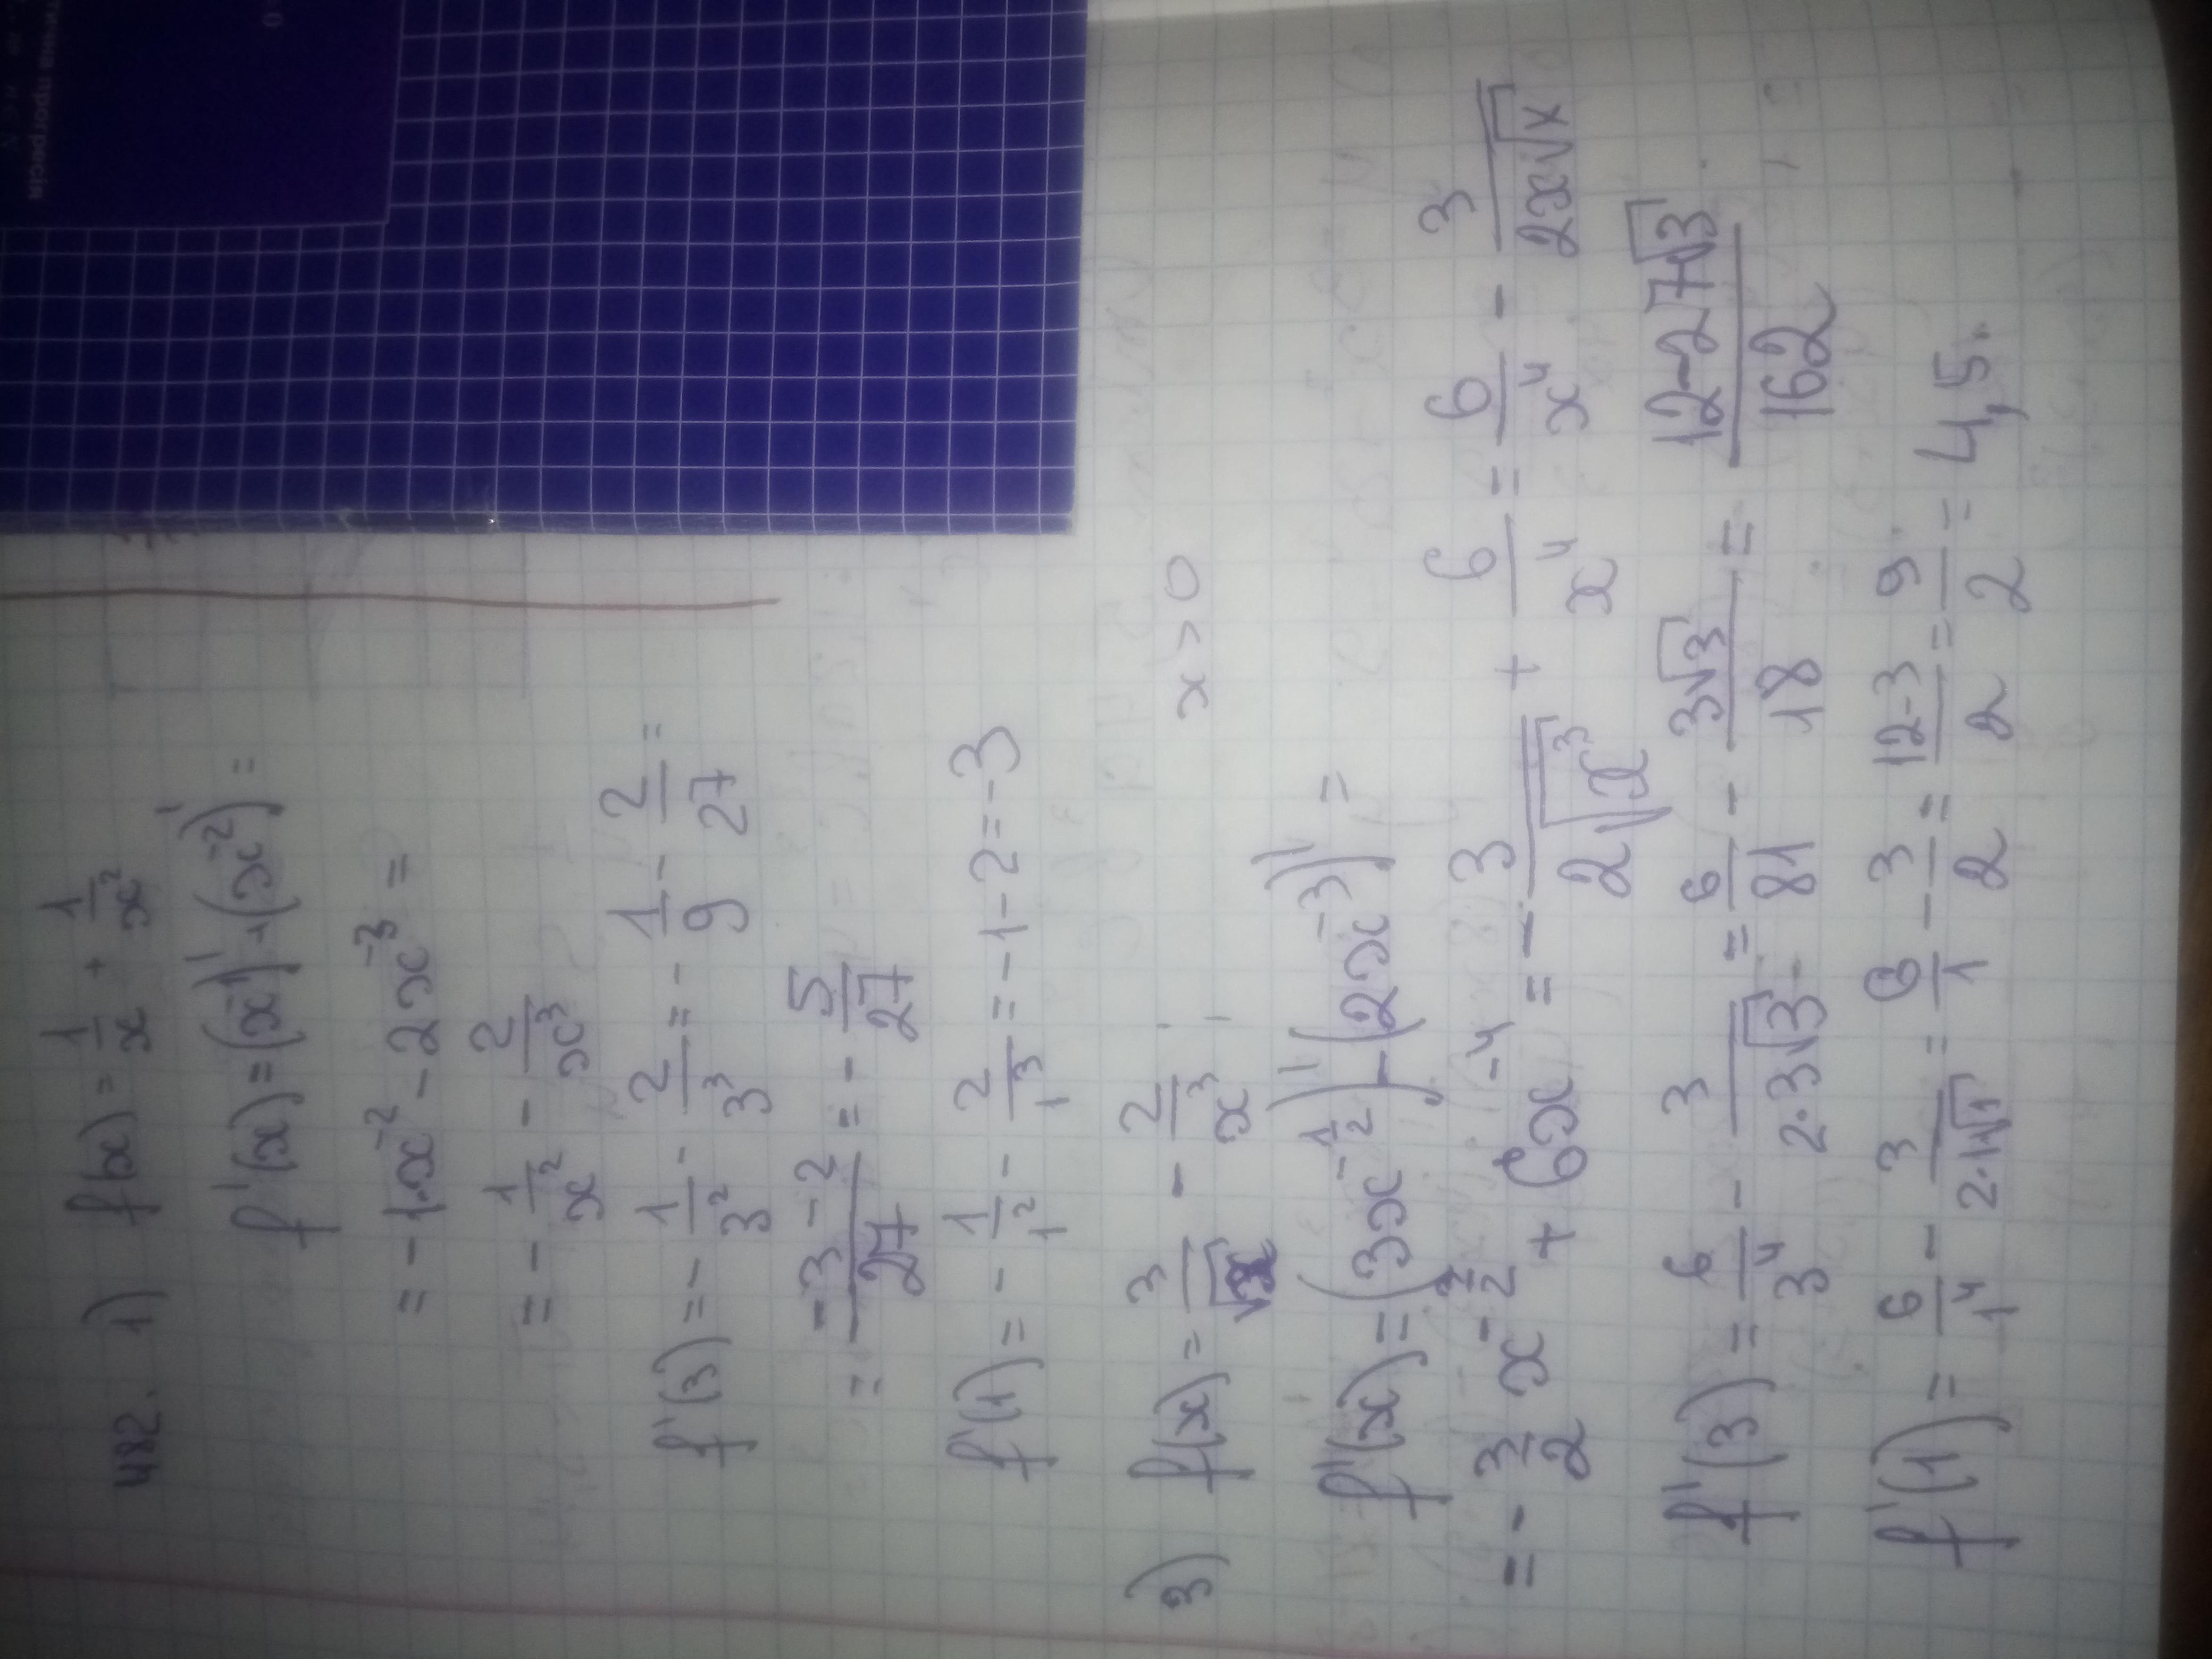 тична прогресія
482. 1) f(x) = 1/x + 1/x²
f'(x) = (x⁻¹)' + (x⁻²)' =
= -1·x⁻² - 2x⁻³ =
= - 1/x² - 2/x³
f'(3) = - 1/3² - 2/3³ = - 1/9 - 2/27 =
= (-3-2)/27 = - 5/27
f'(1) = - 1/1² - 2/1³ = -1-2=-3
3) f(x) = 3/√x - 2/x³ x > 0
f'(x) = (3x^(-1/2))' - (2x⁻³)' =
= - 3/2 x^(-3/2) + 6x⁻⁴ = - 3/(2√x³) + 6/x⁴ = 6/x⁴ - 3/(2x√x)
f'(3) = 6/3⁴ - 3/(2·3√3) = 6/81 - 3√3/18 = (12-27√3)/162
f'(1) = 6/1⁴ - 3/(2·1√1) = 6/1 - 3/2 = (12-3)/2 = 9/2 = 4,5.